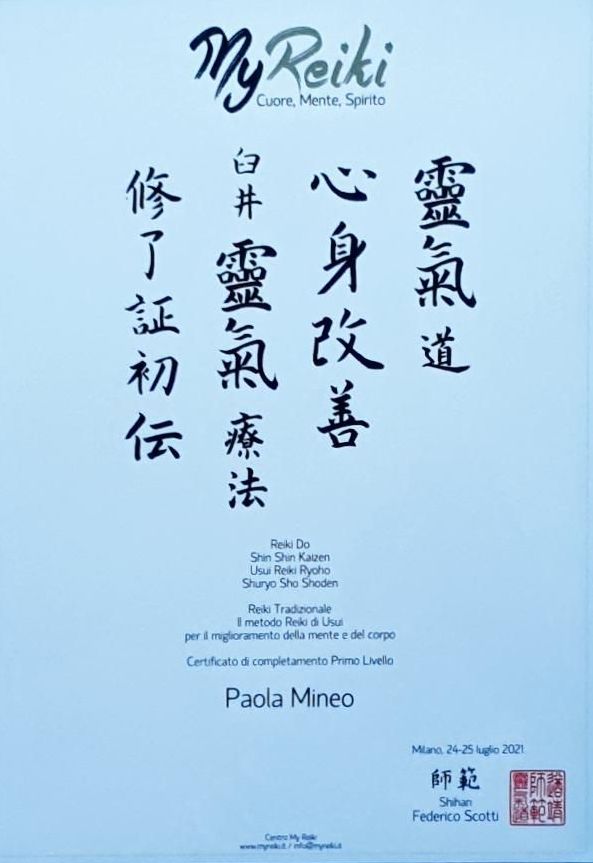 MyReiki
Cuore, Mente, Spirito
靈氣道
心身改善
臼井靈氣療法
修了証初伝
Reiki Do
Shin Shin Kaizen
Usui Reiki Ryoho
Shuryo Sho Shoden
Reiki Tradizionale
Il metodo Reiki di Usui
per il miglioramento della mente e del corpo
Certificato di completamento Primo Livello
Paola Mineo
Milano, 24-25 luglio 2021
師範
Shihan
Federico Scotti
Centro My Reiki
www.myreiki.it / info@myreiki.it